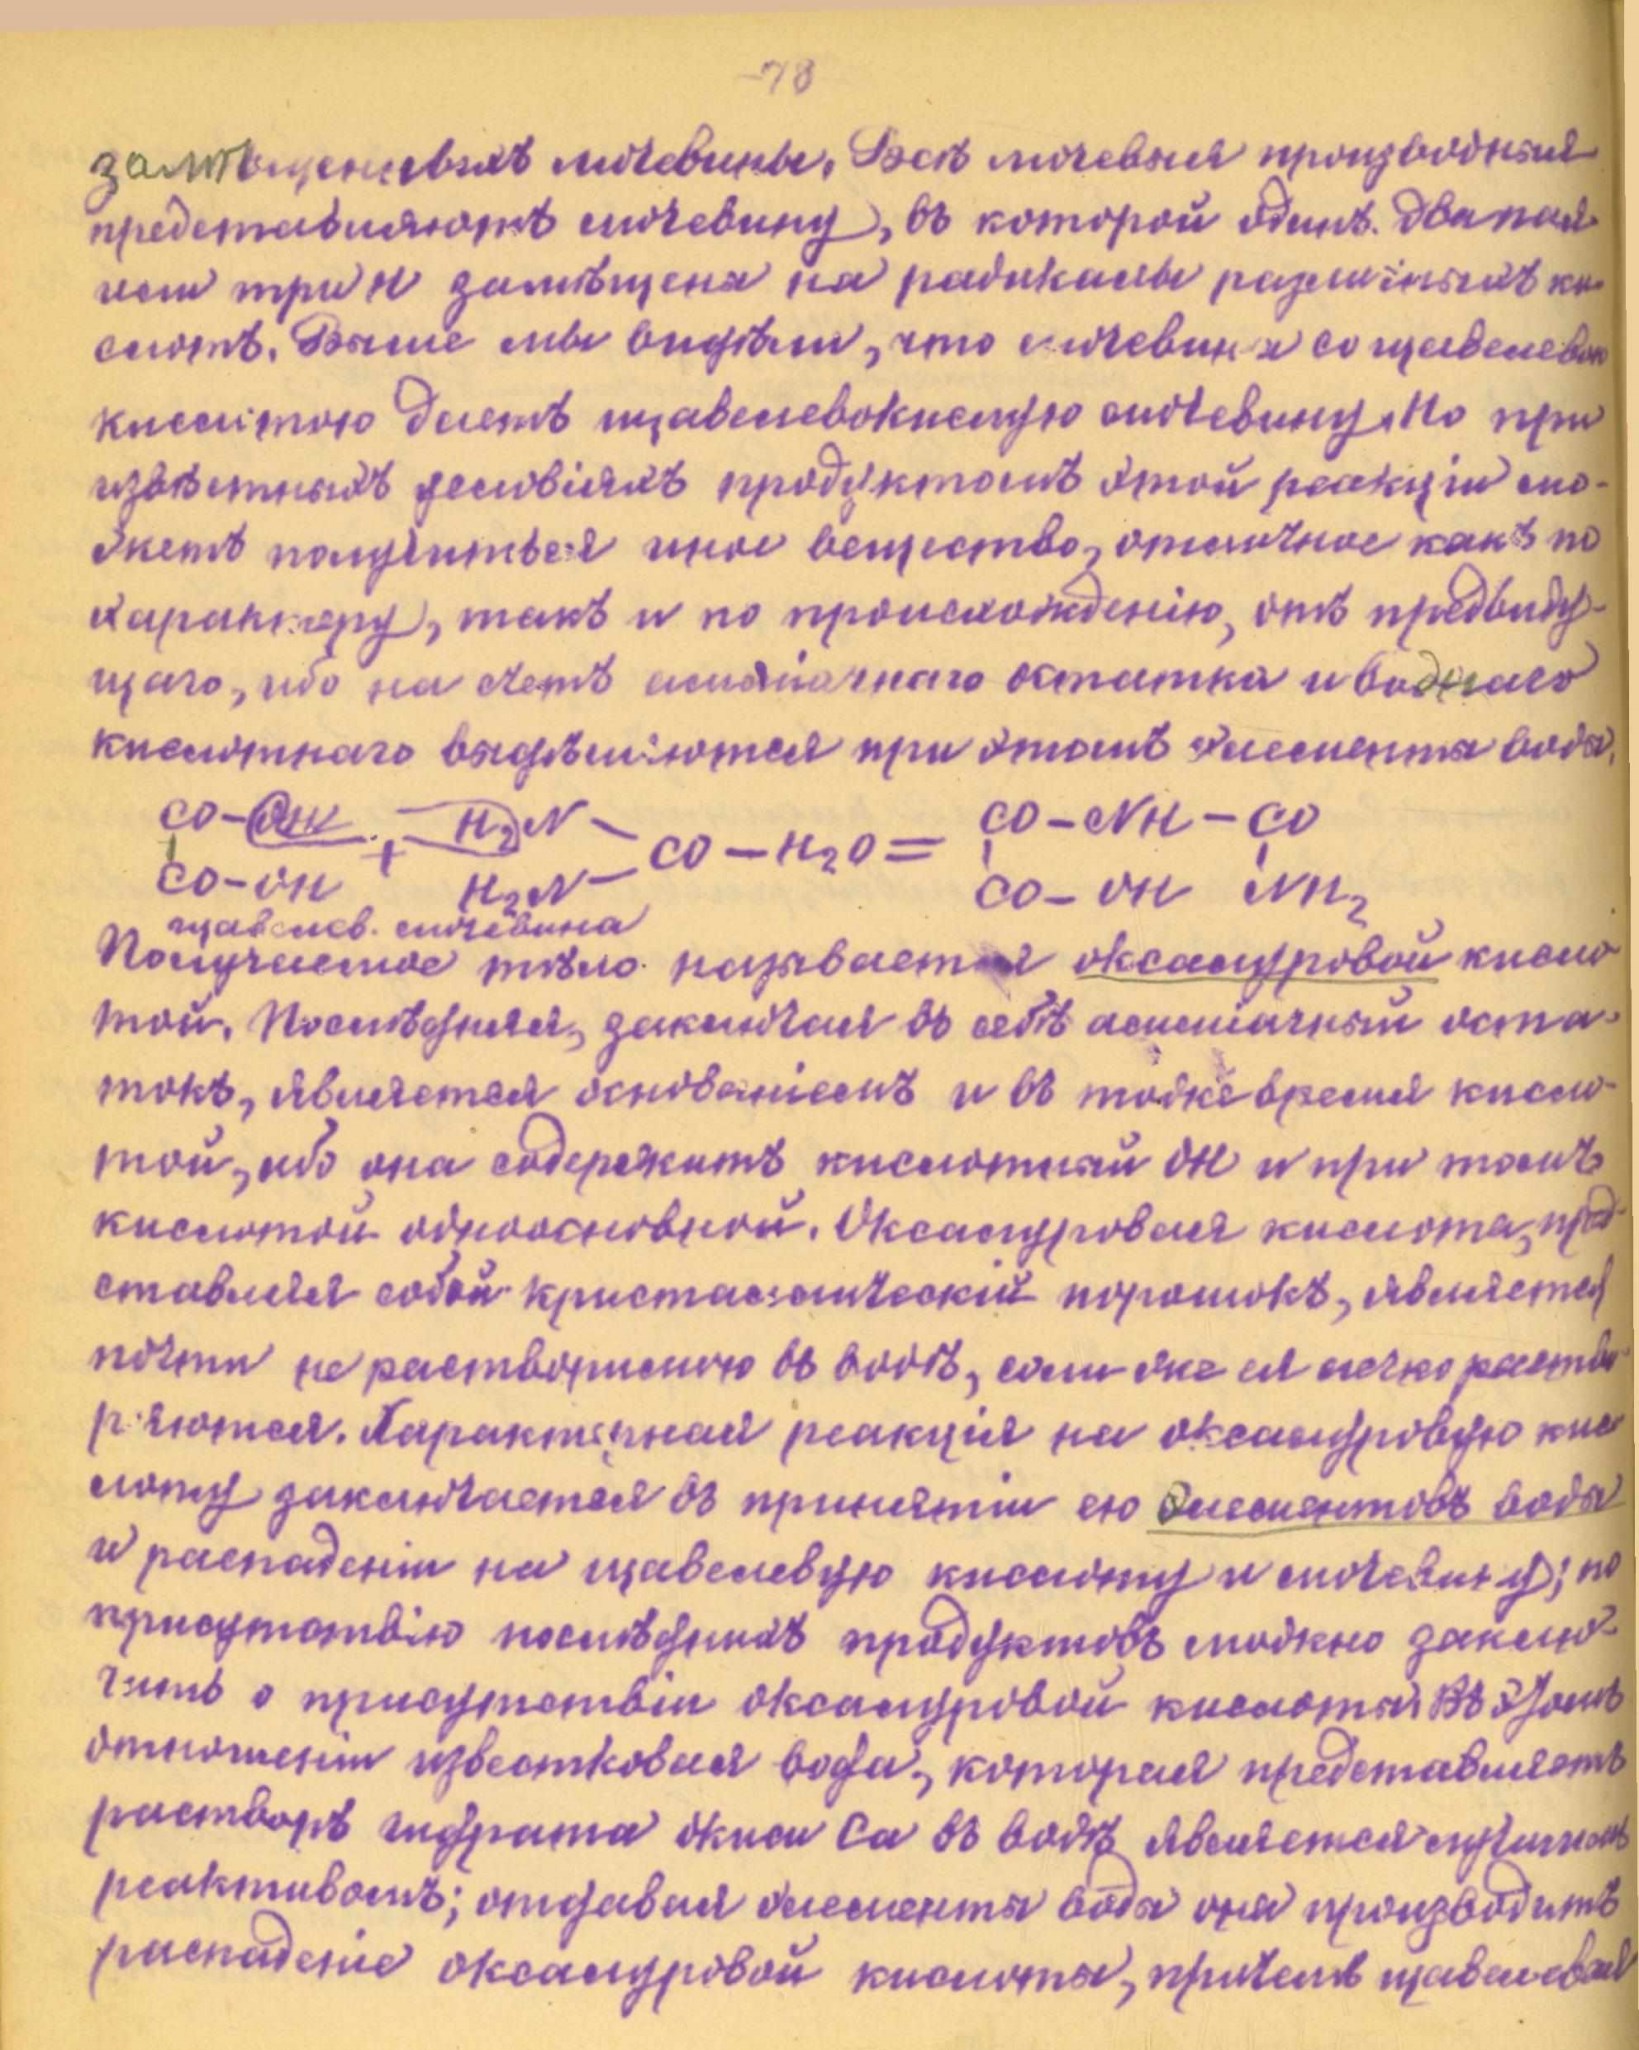 -78
замѣщенныхъ мочевины. Всѣ мочевыя производныя
представляютъ мочевину, въ которой одинъ. два пая
или три Н замѣщена на радикалы различныхъ ки-
слотъ. Выше мы видѣли, что мочевина со щавелевою
кислотою даетъ щавелевокислую мочевину. Но при
извѣстныхъ условіяхъ продуктомъ этой реакціи мо-
жетъ получиться иное вещество, отличное какъ по
характеру, такъ и по происхожденію, отъ предыду-
щаго, ибо на счетъ амміачнаго остатка и воднаго
кислотнаго выдѣляются при этомъ элементы воды.
CO-OH + H2N - CO - H2O = CO - NH - CO
CO-OH H2N CO - OH NH2
щавелев. мочевина
Получаемое тѣло называется оксалуровой кисло
той. Послѣдняя, заключая въ себѣ амміачный оста-
токъ, является основаніемъ и въ тоже время кисло-
той, ибо она содержитъ кислотный ОН и при томъ
кислотой одноосновной. Оксалуровая кислота, пред-
ставляя собой кристаллическій порошокъ, является
почти не растворимою въ водѣ, соли же ея легко раство-
ряются. Характерная реакція на оксалуровую кис
лоту заключается въ принятіи ею элементовъ воды
и распаденіи на щавелевую кислоту и мочевину; по
присутствію послѣднихъ продуктовъ можно заклю-
чить о присутствіи оксалуровой кислоты. Въ этомъ
отношеніи известковая вода, которая представляетъ
растворъ гидрата окиси Ca въ водѣ является лучшимъ
реактивомъ; отдавая элементы воды она производитъ
распаденіе оксалуровой кислоты, причемъ щавелевая